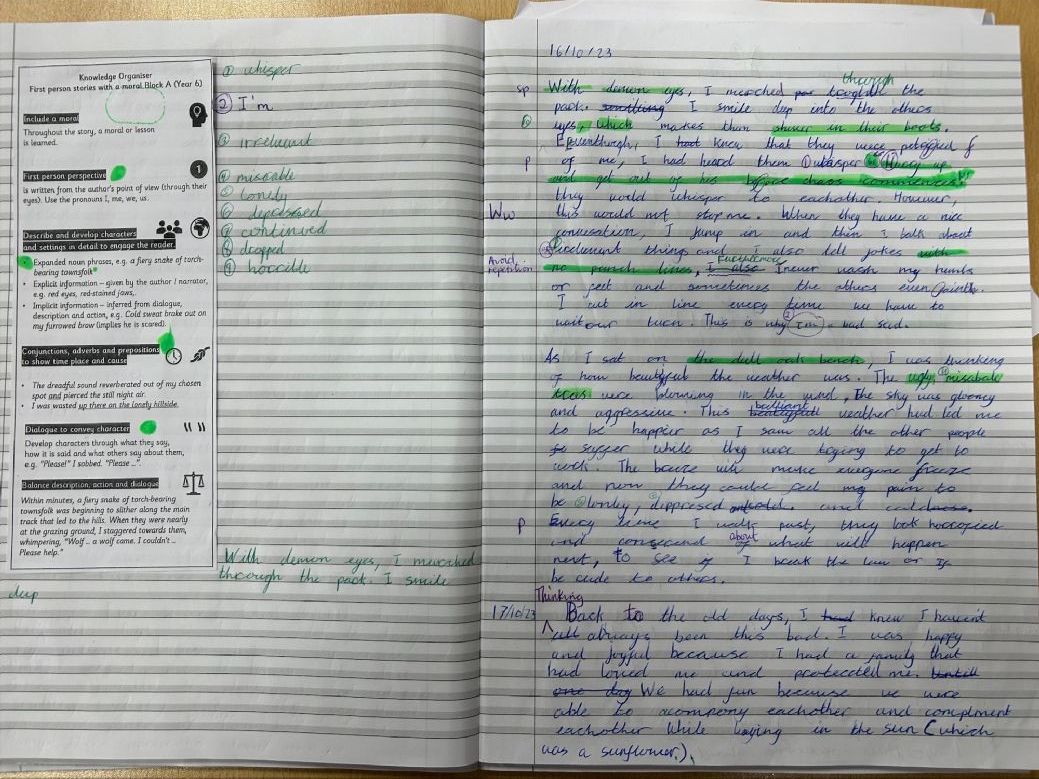 Knowledge Organiser
First person stories with a moral Block A (Year 6)
Include a moral
Throughout the story, a moral or lesson
is learned.
First person perspective
1
is written from the author's point of view (through their
eyes). Use the pronouns I, me, we, us.
Describe and develop characters
and settings in detail to engage the reader.
• Expanded noun phrases, e.g. a fiery snake of torch-
bearing townsfolk
• Explicit information – given by the author / narrator,
e.g. red eyes, red-stained jaws,.
• Implicit information – inferred from dialogue,
description and action, e.g. Cold sweat broke out on
my furrowed brow (implies he is scared).
Conjunctions, adverbs and prepositions
to show time place and cause
• The dreadful sound reverberated out of my chosen
spot and pierced the still night air.
• I was wasted up there on the lonely hillside.
Dialogue to convey character
Develop characters through what they say,
how it is said and what others say about them,
e.g. "Please!" I sobbed. "Please ...".
Balance description, action and dialogue
Within minutes, a fiery snake of torch-bearing
townsfolk was beginning to slither along the main
track that led to the hills. When they were nearly
at the grazing ground, I staggered towards them,
whimpering, "Wolf ... a wolf came. I couldn't ...
Please help."
① whisper
② I'm
③ irrelevant
④ misrable
⑤ lonely
⑥ depressed
⑦ continued
⑧ dragged
⑨ horrible
With demon eyes, I merched
through the park. I smile
deep
16/10/23
through
sp With demon eyes, I merched the
park. I smile deep into the others
eyes, which makes them shiver in their boots.
Eventhough, I knew that they were petrified
p of me, I had heard them whisper Hurry up
and get out of his before chaos commences!"
they would whisper to eachother. However,
Ww this would not stop me. When they have a nice
conversation, I jump in and then I talk about
things and I also tell jokes with
Avoid repetition
no punch lines, Furthermore I never wash my hands
or feet and sometimes the others even faint.
I cut in line every time we have to
wait our turn. This is why I'm bad said.
As I sat on the dull oak bench, I was thinking
of how beautiful the weather was. The ugly, misrable
trees were blowing in the wind, the sky was gloomy
and aggressive. This brilliant weather had led me
to be happier as I saw all the other people
suffer while they were trying to get to
work. The breeze will make everyone freeze
and now they could feel my pain to
be lonely, dippressed and cold.
p Every time I walk past, they look horrified
and concerned about what will happen
next, to see if I break the law or if
be rude to others.
Thinking
17/10/23 Back to the old days, I knew I havent
always been this bad. I was happy
and joyful because I had a family that
had loved me and protected me. Untill
one day We had fun because we were
able to acompony eachother and compliment
eachother while laying in the sun (which
was a sunflower).